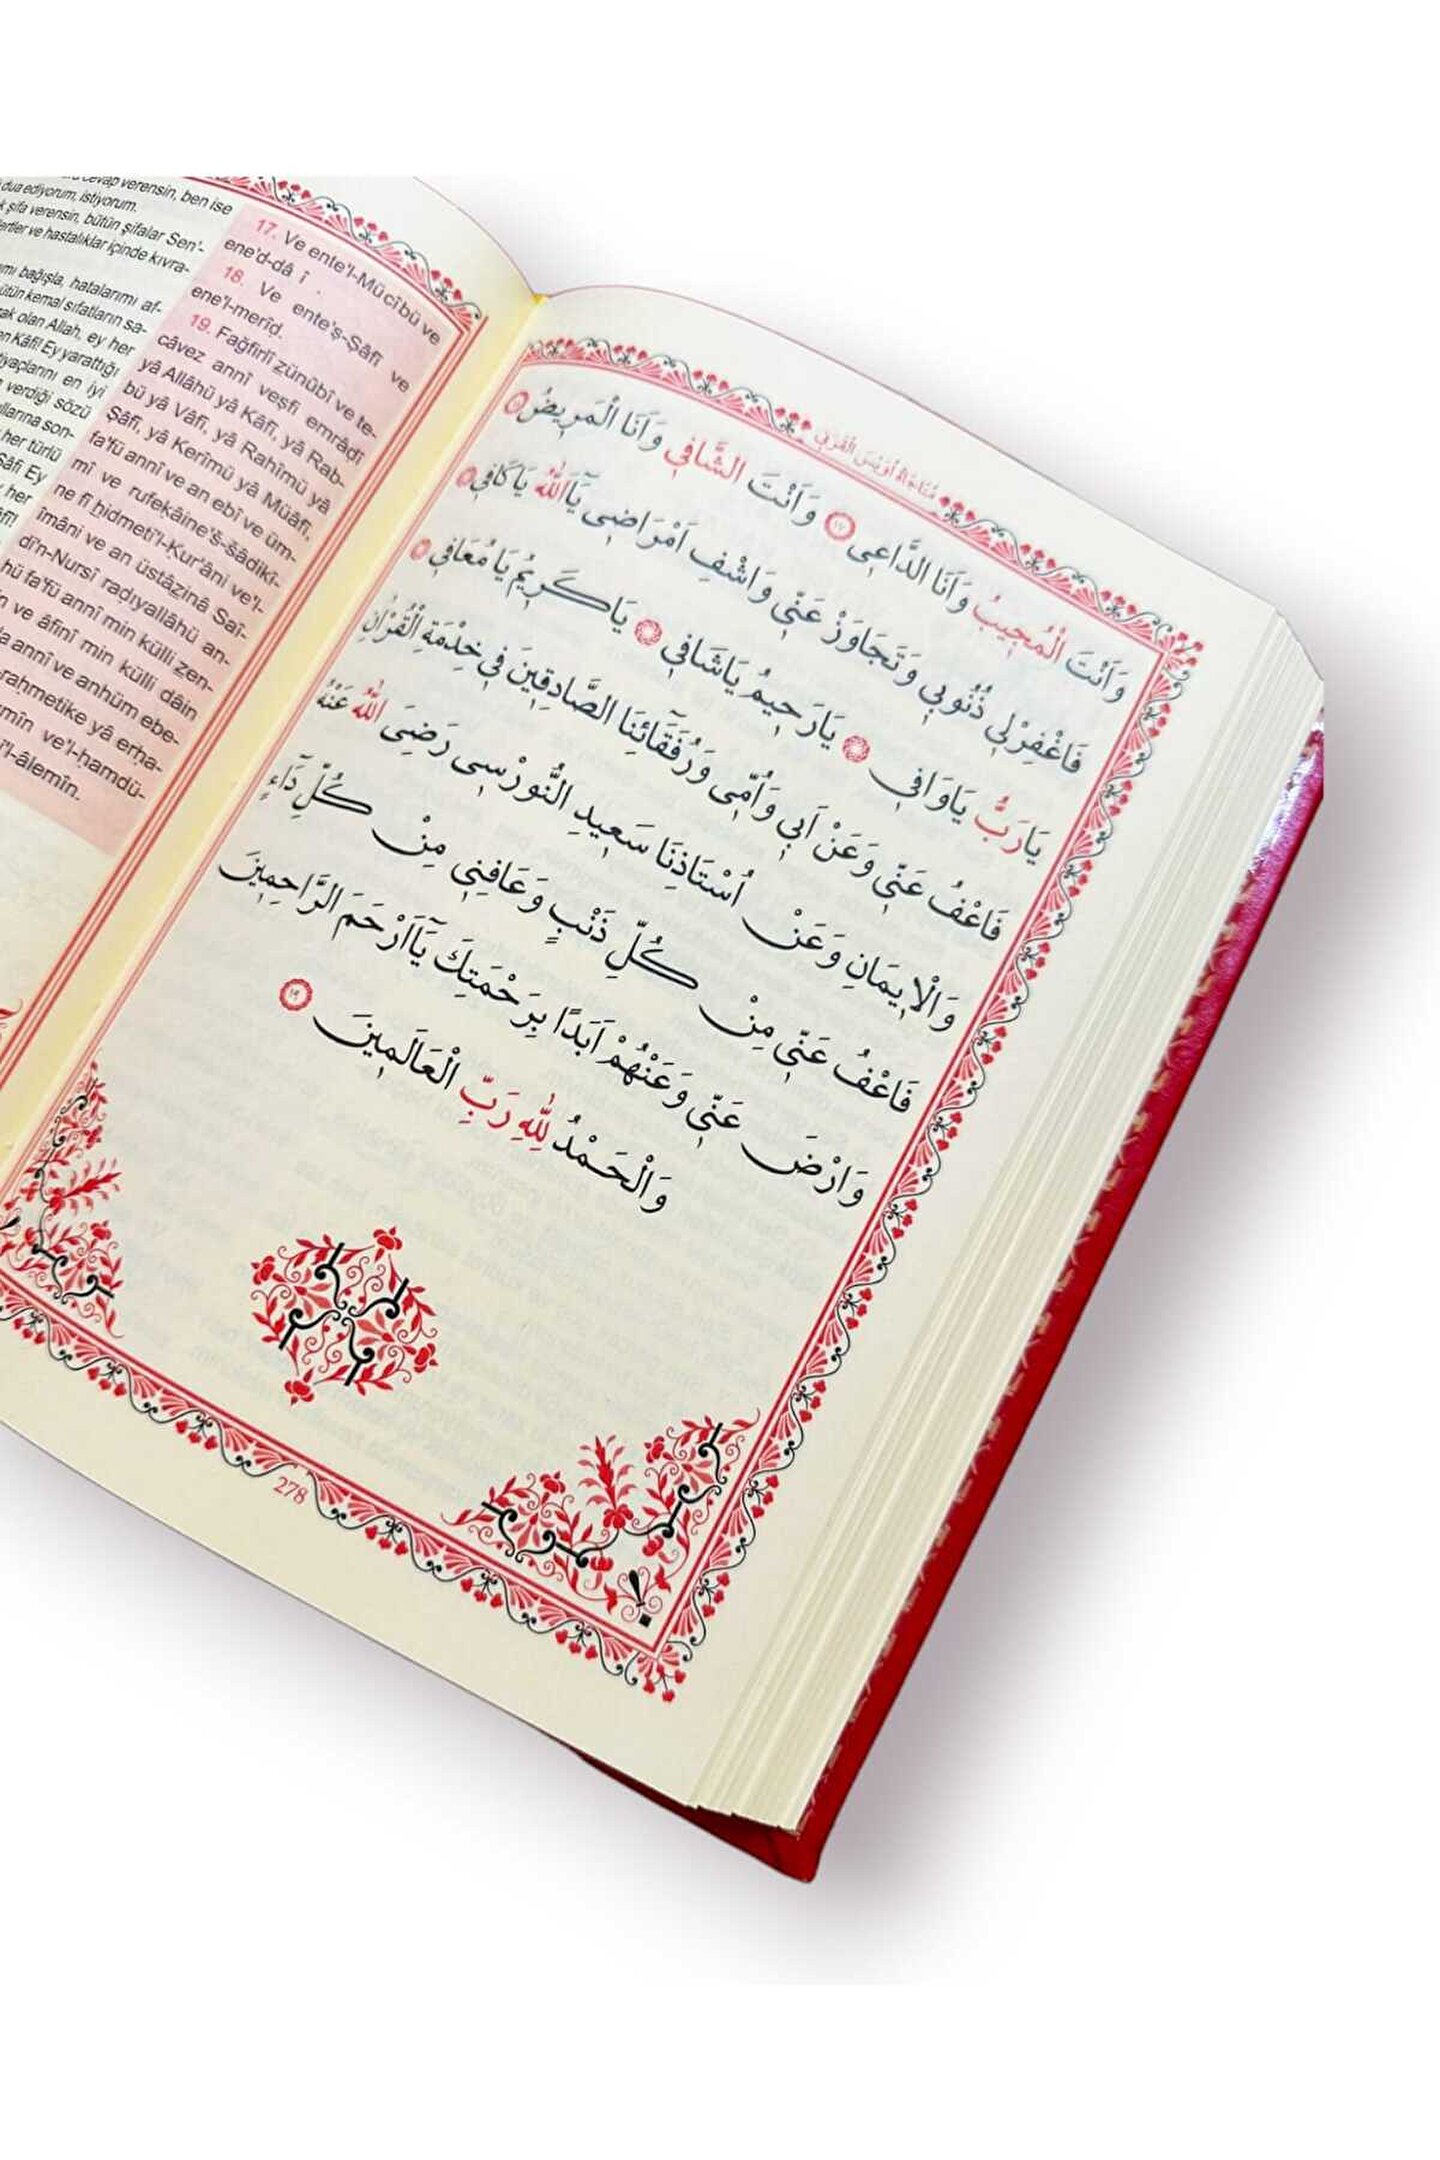 cevap verensin, ben ise
dua ediyorum, istiyorum.
şifa verensin, bütün şifalar Sen'-
dertler ve hastalıklar içinde kıvra-
bağışla, hatalarımı af-
kemal sıfatların sa-
olan Allah, ey her
Kâfî! Ey yarattığı
en iyi
verdiği sözü
son-
her türlü
Ey
her
17. Ve ente'l-Mücîbü ve
ene'd-dâ î
18. Ve ente'ş-Şâfî ve
ene'l-merîḍ.
19. Fağfirlî zünûbî ve te-
câvez annî veşfi emrâḍî
yâ Allâhü yâ Kâfî, yâ Rab-
bü yâ Vâfî, yâ Rahîmü yâ
Şâfî, yâ Kerîmü yâ Müâfî,
fa'fü annî ve an ebî ve üm-
mî ve rufekâine'ṣ-ṣâdikî-
ne fî ḫidmeti'l-Ḳur'âni ve'l-
îmâni ve an üstâẕinâ Saî-
di'n-Nursî raḍıyallâhü an-
hü fa'fü annî min külli zen-
ve âfinî min külli dâin
annî ve anhüm ebe-
raḥmetike yâ erḥa-
ve'l-ḥamdü-
'l-âlemîn.
مُنَاجَاةُ اُوَيْسَ الْقَرَنِي
وَاَنْتَ الْمُجِيبُ وَاَنَا الدَّاعِى ۝١٧ وَاَنْتَ الشَّافِى وَاَنَا الْمَرِيضُ ۝
فَاغْفِرْلِى ذُنُوبِى وَتَجَاوَزْ عَنِّى وَاشْفِ اَمْرَاضِى يَٓا اَللّٰهُ يَا كَافِى ۝
يَارَبُّ يَاوَافِى ۝ يَارَحِيمُ يَاشَافِى ۝ يَاكَرِيمُ يَا مُعَافِى ۝
فَاعْفُ عَنِّى وَعَنْ اَبِى وَاُمِّى وَرُفَقَٓائِنَا الصَّادِقِينَ فِى خِدْمَةِ الْقُرْاٰنِ
وَالْاِيمَانِ وَعَنْ اُسْتَاذِنَا سَعِيدِ النُّورْسِى رَضِىَ اللّٰهُ عَنْهُ
فَاعْفُ عَنِّى مِنْ كُلِّ ذَنْبٍ وَعَافِنِى مِنْ كُلِّ دَٓاءٍ
وَارْضَ عَنِّى وَعَنْهُمْ اَبَدًا بِرَحْمَتِكَ يَٓا اَرْحَمَ الرَّاحِمِينَ
وَالْحَمْدُ لِلّٰهِ رَبِّ الْعَالَمِينَ ۝١٩
278